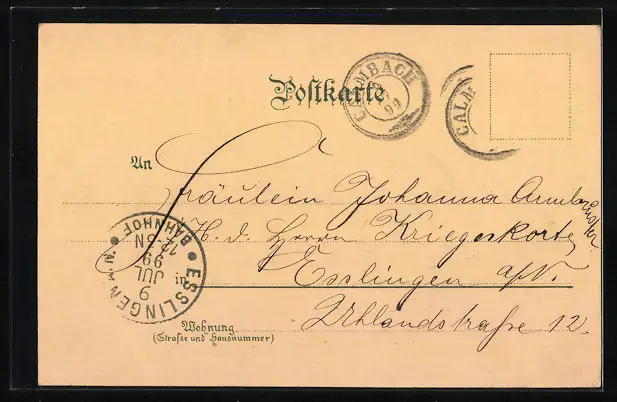 Postkarte
CALMBACH
99
CALM
An
Fräulein Johanna
H. d. Herrn Kriegeskorte
in Esslingen a/N.
Uhlandstraße 12.
Wohnung
(Straße und Hausnummer)
ESSLINGEN A. N. BAHNHOF
9 JUL 99